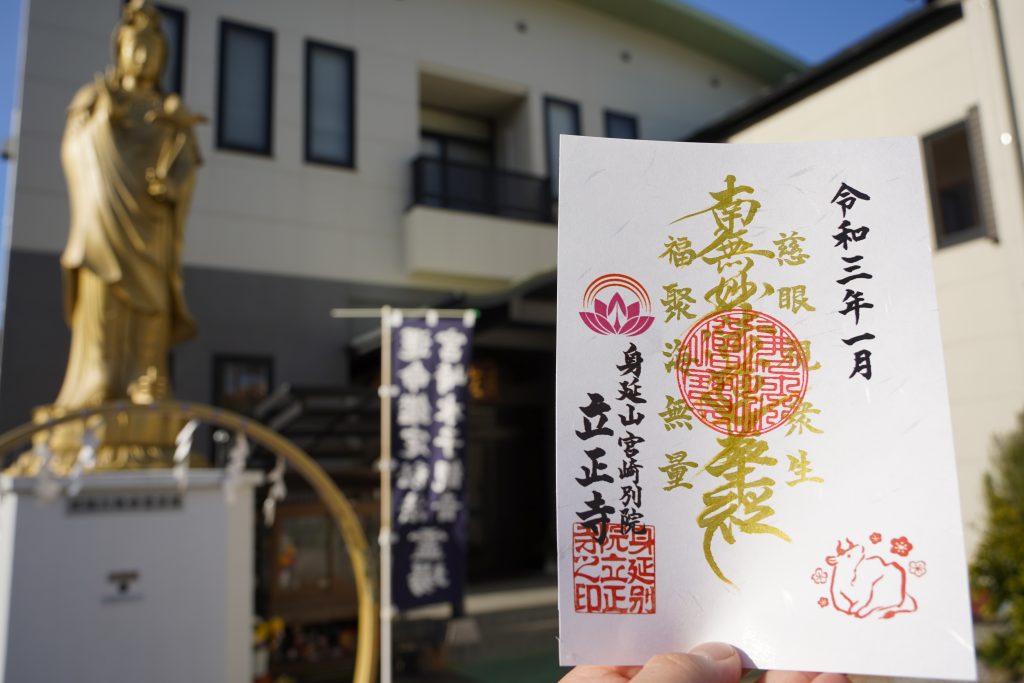 令和三年一月
慈眼視衆生
南無妙法蓮華経
福聚海無量
身延山宮崎別院
立正寺
身延別
院立正
寺之印
宮崎水子観音
運命鑑定
霊場